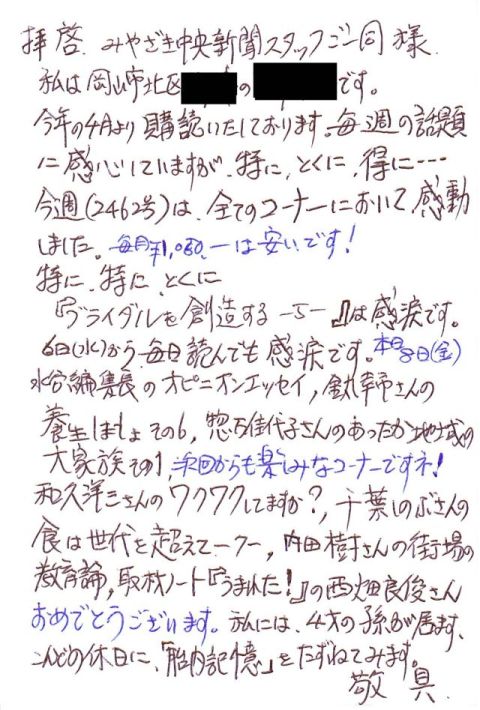 拝啓、みやざき中央新聞スタッフご一同様、
私は岡山市北区 の です。
今年の4月より購読いたしております。毎週の話題
に感心していますが、特に、とくに、得に…
今週(2462号)は、全てのコーナーにおいて、感動
しました。毎月¥1,080.-は安いです!
特に、特に、とくに
『ブライダルを創造する-5-』は感涙です。
6日(水)から、毎日読んでも感涙です。本日8日(金)
水谷編集長のオピニオンエッセイ, 幸さんの
養生しましょその6, 惣万佳代子さんのあったか地域の
大家族その1, 次回からも楽しみなコーナーですネ!
和久洋三さんのワクワクしてますか?, 千葉しのぶさんの
食は世代を超えて-ク-, 内田樹さんの街場の
教育論, 取材ノート『うまれた!』の西畑良俊さん
おめでとうございます。私には、4才の孫が居ます、
こんどの休日に、「胎内記憶」をたずねてみます。
敬具